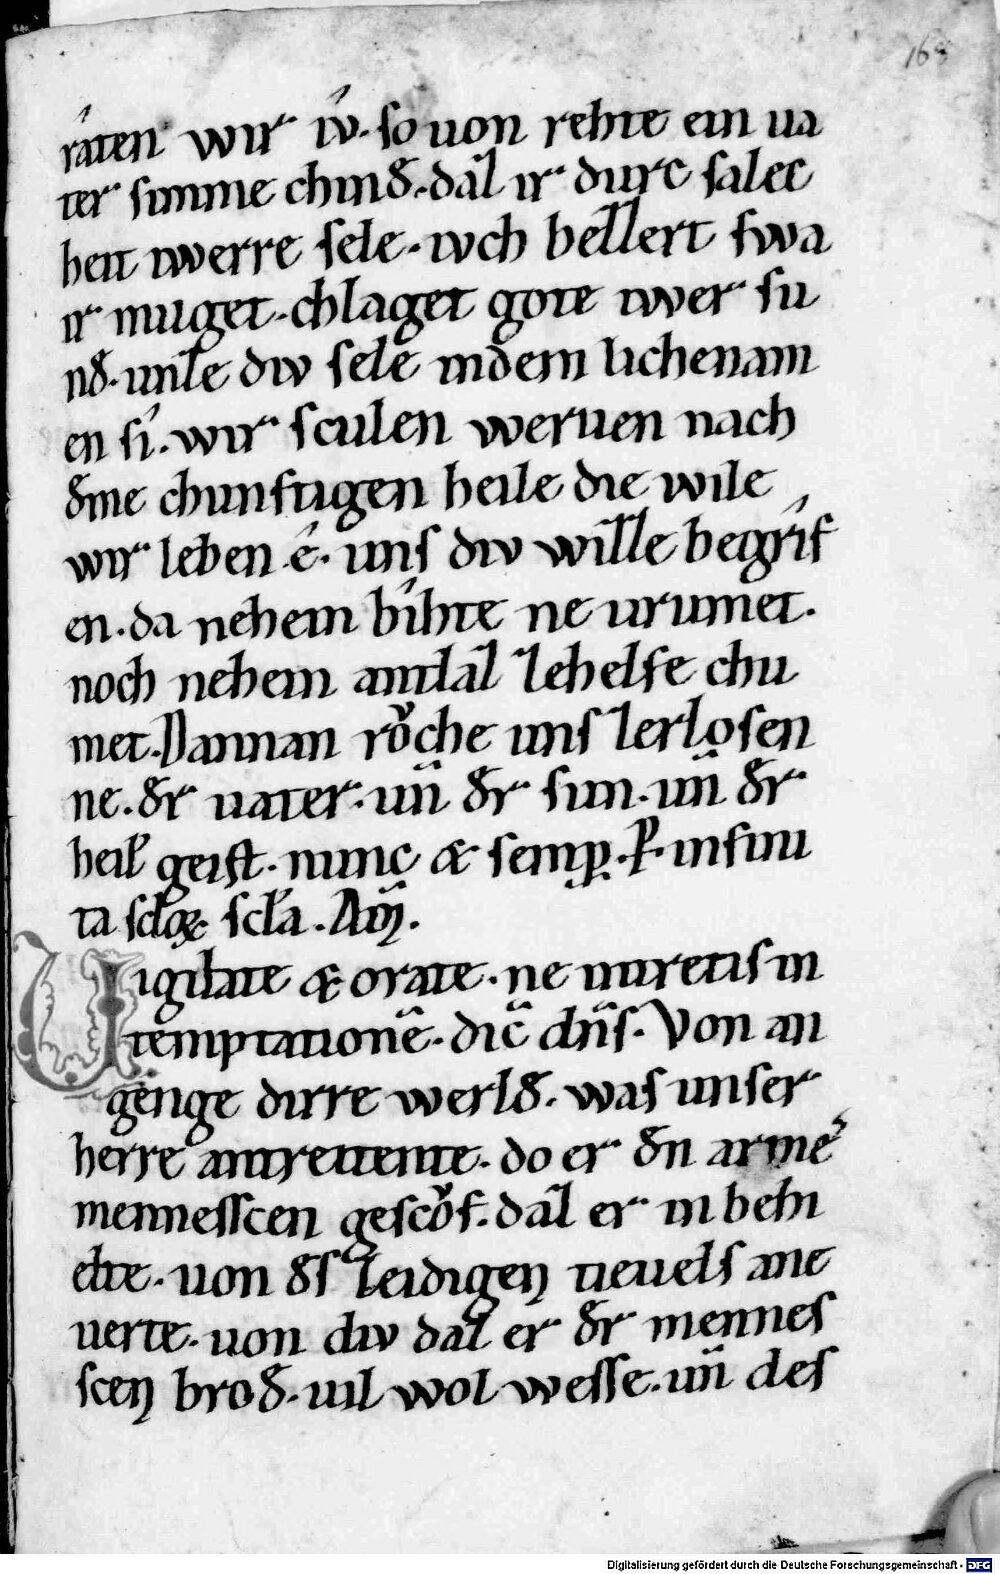 168
râten wir iv̂. so von rehte ein ua
ter sinme chinđ. daʒ ir durc salec
heit iwerre sele. ivch beʒʒert swa
ir muget. chlaget gote iwer su
nđ. unʒe div sele in dem lichenam
en sî. wir sculen weruen nach
đme chunftigen heile die wile
wir leben. ê. uns div wiʒʒe begrîf
en. da nehein bîhte ne urumet.
noch nehein antlaʒ ʒehelfe chu
met. Dannan růche uns ʒerlosen
ne. đr uater. uñ đr sun. uñ đr
heil̄ geist. nunc & semp̱. P̱. infini
ta scl̄oꝝ scl̄a. Am̄.
Uigilate & orate. ne intretis in
temptationē. dic̄ dn̄s. Von an
genge dirre werlđ. was unser
herre antreitente. do er đn armē
mennesscen gescůf. daʒ er in behi
elte. von đs ʒeidigen tieuels ane
uerte. von div daʒ er đr mennes
scen brođ. uil wol wesse. uñ des
Digitalisierung gefördert durch die Deutsche Forschungsgemeinschaft - DFG